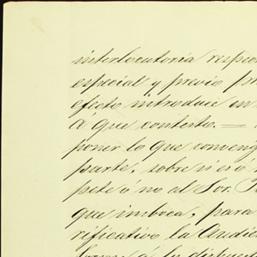 interlocutoria respec
especial y previo pr
efecto introduce en
á que contesto. —
poner lo que conveng
parte, sobre si es ó
pete ó no al Sor. F
que imboca, para
rificativo la Audie